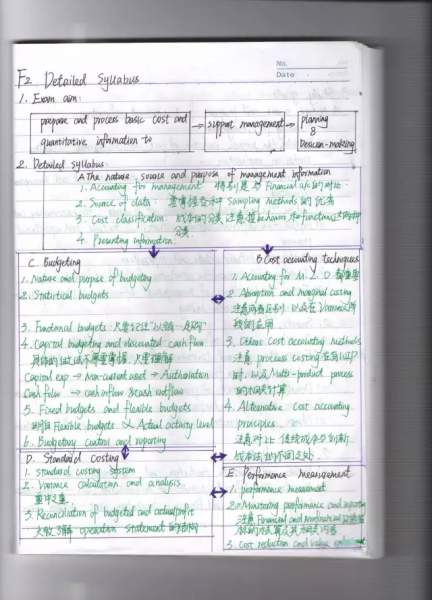 No.
Date
F2 Detailed Syllabus
1. Exam aim:
prepare and process basic cost and
quantitative information to
support management
planning
&
Decision-making
2. Detailed syllabus:
A The nature source and purpose of management information
1. Accounting for management 特别是与 Financial a/c 的对比
2. Source of data: Sampling methods 的优劣
3. Cost classification: 成本的分类 注意按 behavior 和 function
分类
4. Presenting information:
C. Budgeting
1. Nature and purpose of budgeting
2. Statistical budgets
3. Functional budgets
4. Capital budgeting and discounted cash flow
具体的 不需要掌握, 只要理解
Capital exp → Non-current asset → Authorisation
Cash flow → cash inflow & cash outflow
5. Fixed budgets and flexible budgets
Flexible budgets Actual activity level
6. Budgetary control and reporting
B Cost accounting techniques
1. Accounting for M. L. O
2. Absorption and marginal costing
注意两者区别 以及在
的应用
3. Other Cost accounting methods
注意 process costing
时, 以及 Multi-product process
的相关计算
4. Alternative Cost accounting
principles
注意对比 传统成本
成本法的不同之处
D. Standard Costing
1. Standard costing system
2. Variance calculation and analysis
重中之重
3. Reconciliation of budgeted and actual profit
大致了解 operation statement 的结构
E. Performance measurement
1. performance measurement
2. Monitoring performance and reporting
注意 Financial and Nonfinancial
3. Cost reduction and value enhancement